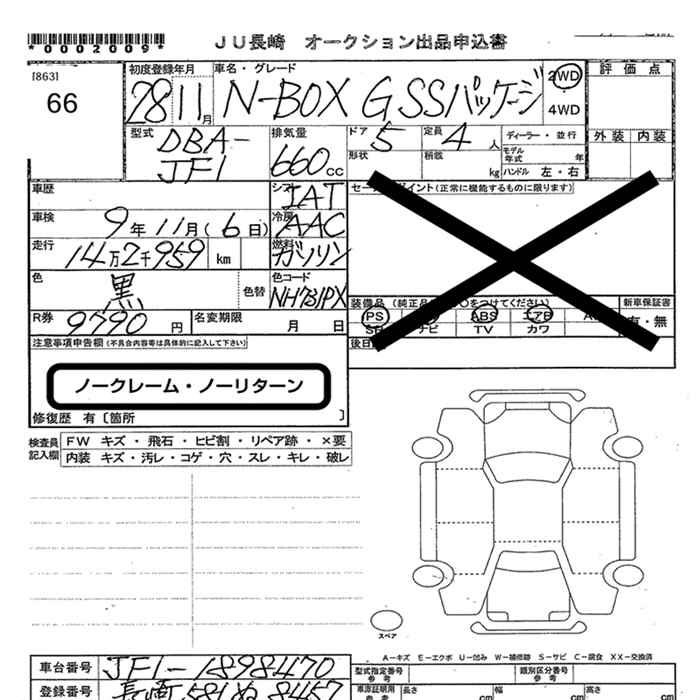 *0002009*
JU長崎 オークション出品申込書
[863]
66
初度登録年月
28 11月
車名・グレード
N-BOX G SSパッケージ
2WD
4WD
評価点
外装 内装
型式
DBA-
JF1
排気量
660cc
ドア 5
定員 4人
形状
積載 kg
ディーラー・並行
モデル年式 年
ハンドル 左・右
車歴
シフト IAT
車検 9年11月(6日)
冷房 AAC
走行 14万2千959 km
燃料 ガソリン
色 黒
色替
色コード NH731PX
R券 9790円
名変期限 月 日
ポイント(正常に機能するものに限ります)
装備品 (純正品 ○をつけてください)
PS ABS エアB
ナビ TV カワ
新車保証書
有・無
後日
注意事項申告欄(不具合内容等は具体的に記入して下さい)
ノークレーム・ノーリターン
修復歴 有〔箇所 〕
検査員記入欄
FW キズ・飛石・ヒビ割・リペア跡・×要
内装 キズ・汚レ・コゲ・穴・スレ・キレ・破レ
スペア
A-キズ E-エクボ U-凹み W-補修跡 S-サビ C-腐食 XX-交換済
車台番号 JF1-1898470
型式指定番号 参考
類別区分番号 参考
登録番号 長崎581ぬ8457
車庫証明用 参考
長さ cm 幅 cm 高さ cm